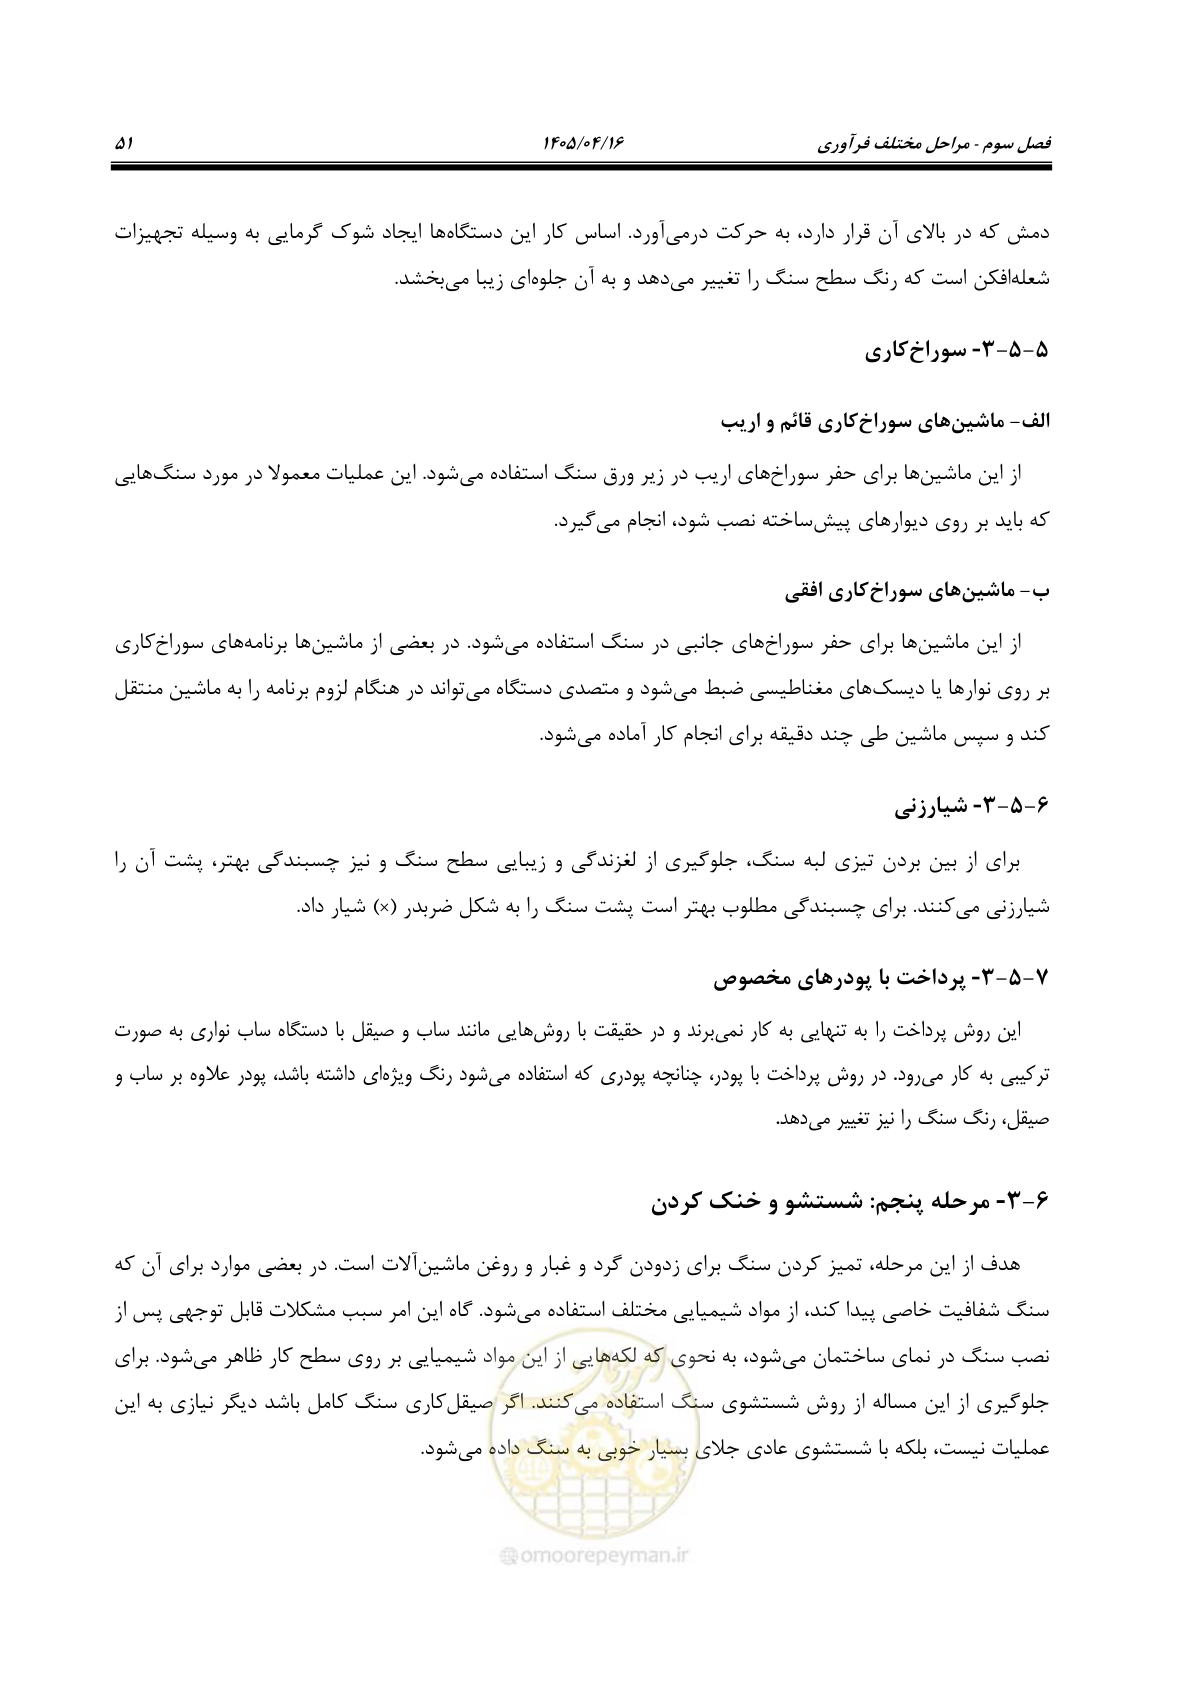 فصل سوم - مراحل مختلف فرآوری ۱۴۰۵/۰۴/۱۶ ۵۱
دمش که در بالای آن قرار دارد، به حرکت درمی‌آورد. اساس کار این دستگاه‌ها ایجاد شوک گرمایی به وسیله تجهیزات
شعله‌افکن است که رنگ سطح سنگ را تغییر می‌دهد و به آن جلوه‌ای زیبا می‌بخشد.
۳-۵-۵- سوراخ‌کاری
الف- ماشین‌های سوراخ‌کاری قائم و اریب
از این ماشین‌ها برای حفر سوراخ‌های اریب در زیر ورق سنگ استفاده می‌شود. این عملیات معمولا در مورد سنگ‌هایی
که باید بر روی دیوارهای پیش‌ساخته نصب شود، انجام می‌گیرد.
ب- ماشین‌های سوراخ‌کاری افقی
از این ماشین‌ها برای حفر سوراخ‌های جانبی در سنگ استفاده می‌شود. در بعضی از ماشین‌ها برنامه‌های سوراخ‌کاری
بر روی نوارها یا دیسک‌های مغناطیسی ضبط می‌شود و متصدی دستگاه می‌تواند در هنگام لزوم برنامه را به ماشین منتقل
کند و سپس ماشین طی چند دقیقه برای انجام کار آماده می‌شود.
۳-۵-۶- شیارزنی
برای از بین بردن تیزی لبه سنگ، جلوگیری از لغزندگی و زیبایی سطح سنگ و نیز چسبندگی بهتر، پشت آن را
شیارزنی می‌کنند. برای چسبندگی مطلوب بهتر است پشت سنگ را به شکل ضربدر (×) شیار داد.
۳-۵-۷- پرداخت با پودرهای مخصوص
این روش پرداخت را به تنهایی به کار نمی‌برند و در حقیقت با روش‌هایی مانند ساب و صیقل با دستگاه ساب نواری به صورت
ترکیبی به کار می‌رود. در روش پرداخت با پودر، چنانچه پودری که استفاده می‌شود رنگ ویژه‌ای داشته باشد، پودر علاوه بر ساب و
صیقل، رنگ سنگ را نیز تغییر می‌دهد.
۳-۶- مرحله پنجم: شستشو و خنک کردن
هدف از این مرحله، تمیز کردن سنگ برای زدودن گرد و غبار و روغن ماشین‌آلات است. در بعضی موارد برای آن که
سنگ شفافیت خاصی پیدا کند، از مواد شیمیایی مختلف استفاده می‌شود. گاه این امر سبب مشکلات قابل توجهی پس از
نصب سنگ در نمای ساختمان می‌شود، به نحوی که لکه‌هایی از این مواد شیمیایی بر روی سطح کار ظاهر می‌شود. برای
جلوگیری از این مساله از روش شستشوی سنگ استفاده می‌کنند. اگر صیقل‌کاری سنگ کامل باشد دیگر نیازی به این
عملیات نیست، بلکه با شستشوی عادی جلای بسیار خوبی به سنگ داده می‌شود.
@omoorepeyman.ir